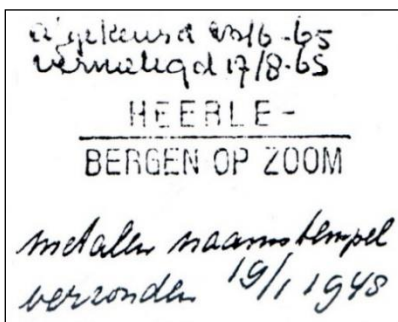 afgekeurd 22/6-65
vernietigd 17/8-65
HEERLE-
BERGEN OP ZOOM
metalen naamstempel
verzonden 19/1 1948